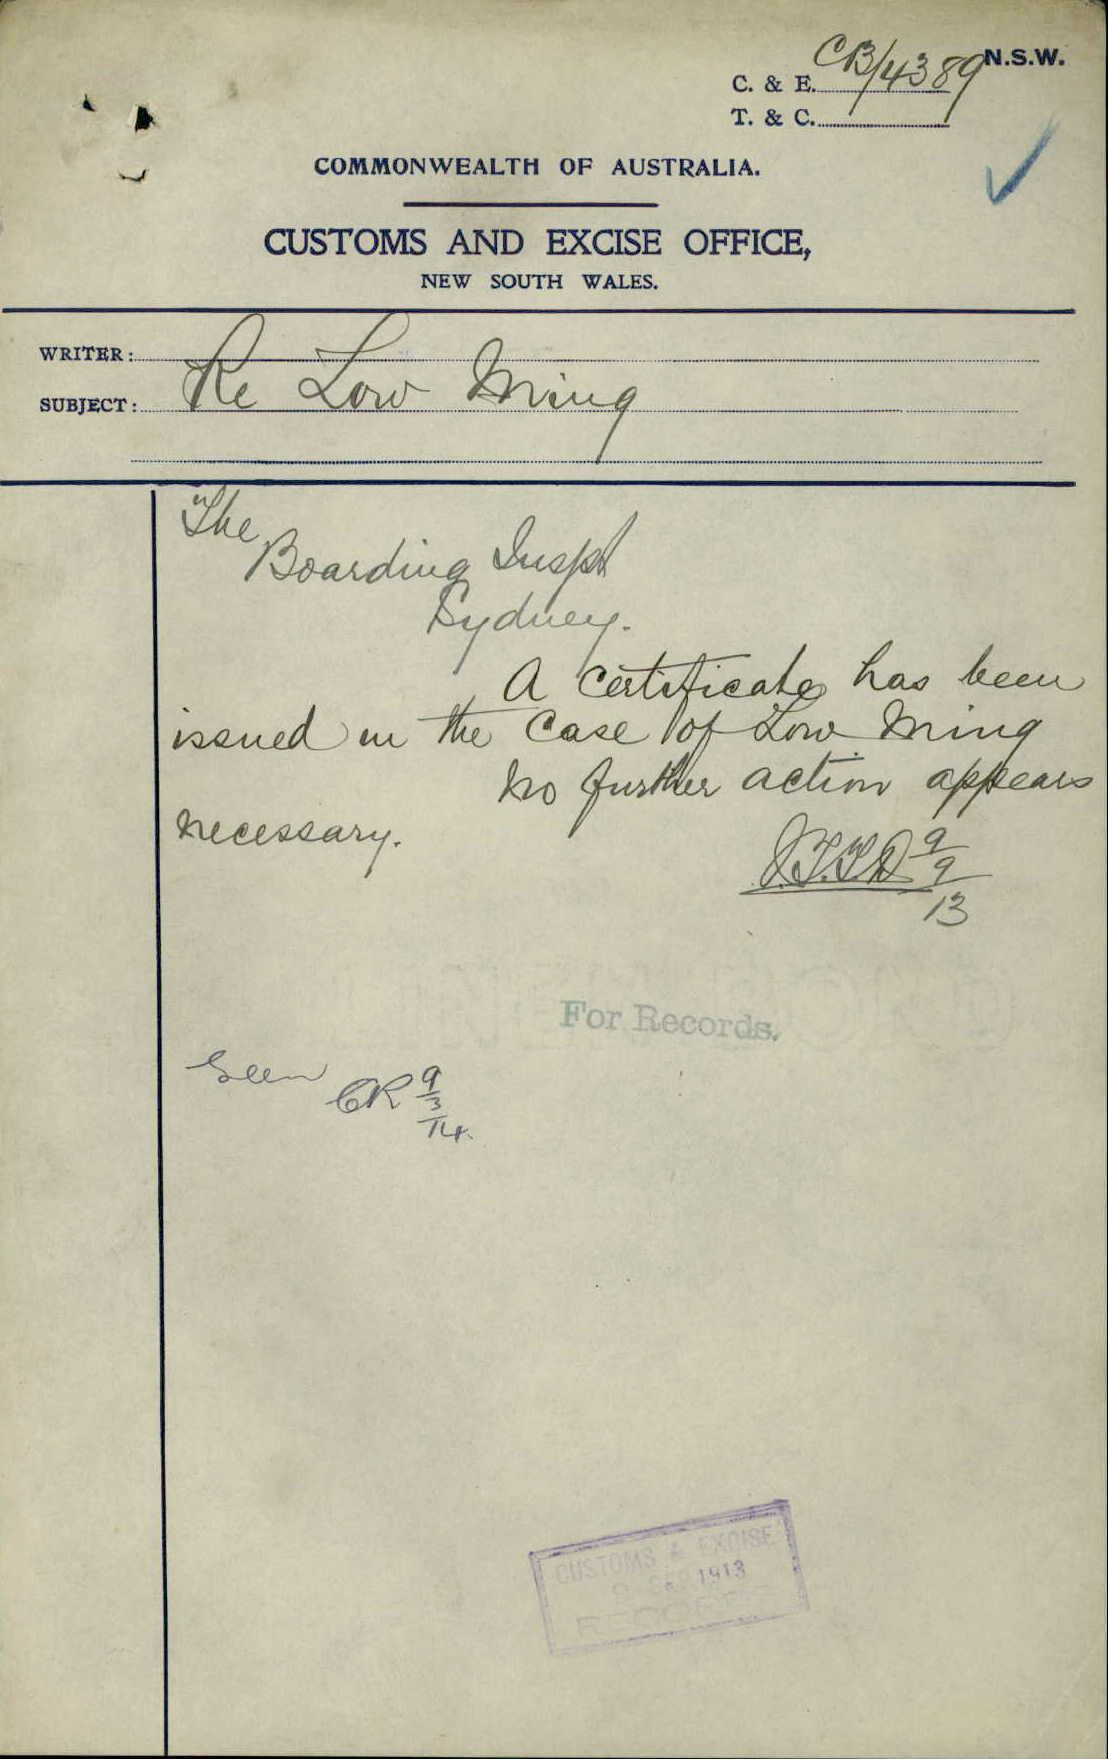 N.S.W.
C. & E. CB/4389
T. & C.
COMMONWEALTH OF AUSTRALIA.
CUSTOMS AND EXCISE OFFICE,
NEW SOUTH WALES.
WRITER:
SUBJECT: Re Low Ming
The
Boarding Inspr
Sydney.
A Certificate has been
issued in the Case of Low Ming
No further action appears
necessary.
9
9
13
For Records.
Seen
CR 9
3
14.
CUSTOMS & EXCISE
1913
RECORDS